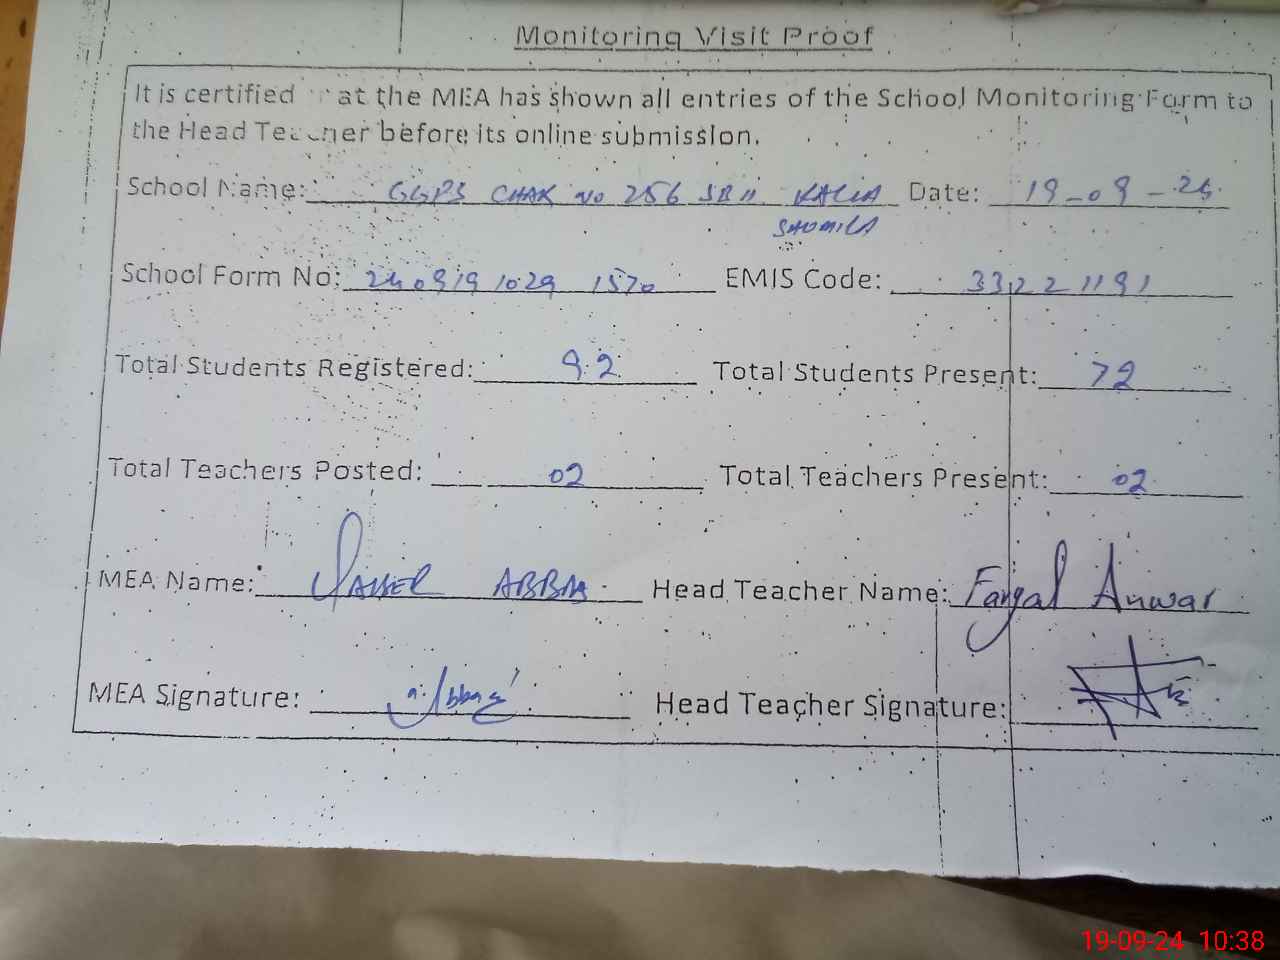 Monitoring Visit Proof
It is certified at the MEA has shown all entries of the School Monitoring Form to
the Head Teacher before its online submission.
School Name: GGPS CHAK NO 256 SB Date: 19-09-24
School Form No: 240919 1029 1570 EMIS Code: 33221191
Total Students Registered: 92 Total Students Present: 72
Total Teachers Posted: 02 Total Teachers Present: 02
MEA Name: ABBAS Head Teacher Name: Anwar
MEA Signature: Head Teacher Signature:
19-09-24 10:38